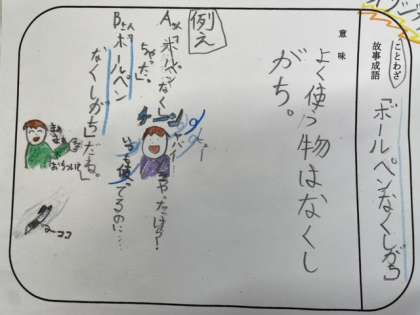 オリジナル
ことわざ
故事成語
「ボールペンなくしがち」
意味
よく使う物はなくし
がち。
例え
Aさん「ボールペンなくし
ちゃった。」
Bさん「ボールペン
なくしがちだね。」
ガーン
ヤバイ
いつも使ってるのに…
ココ